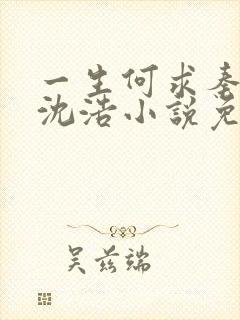 一生何求秦
沈浩小說免
吴兹端